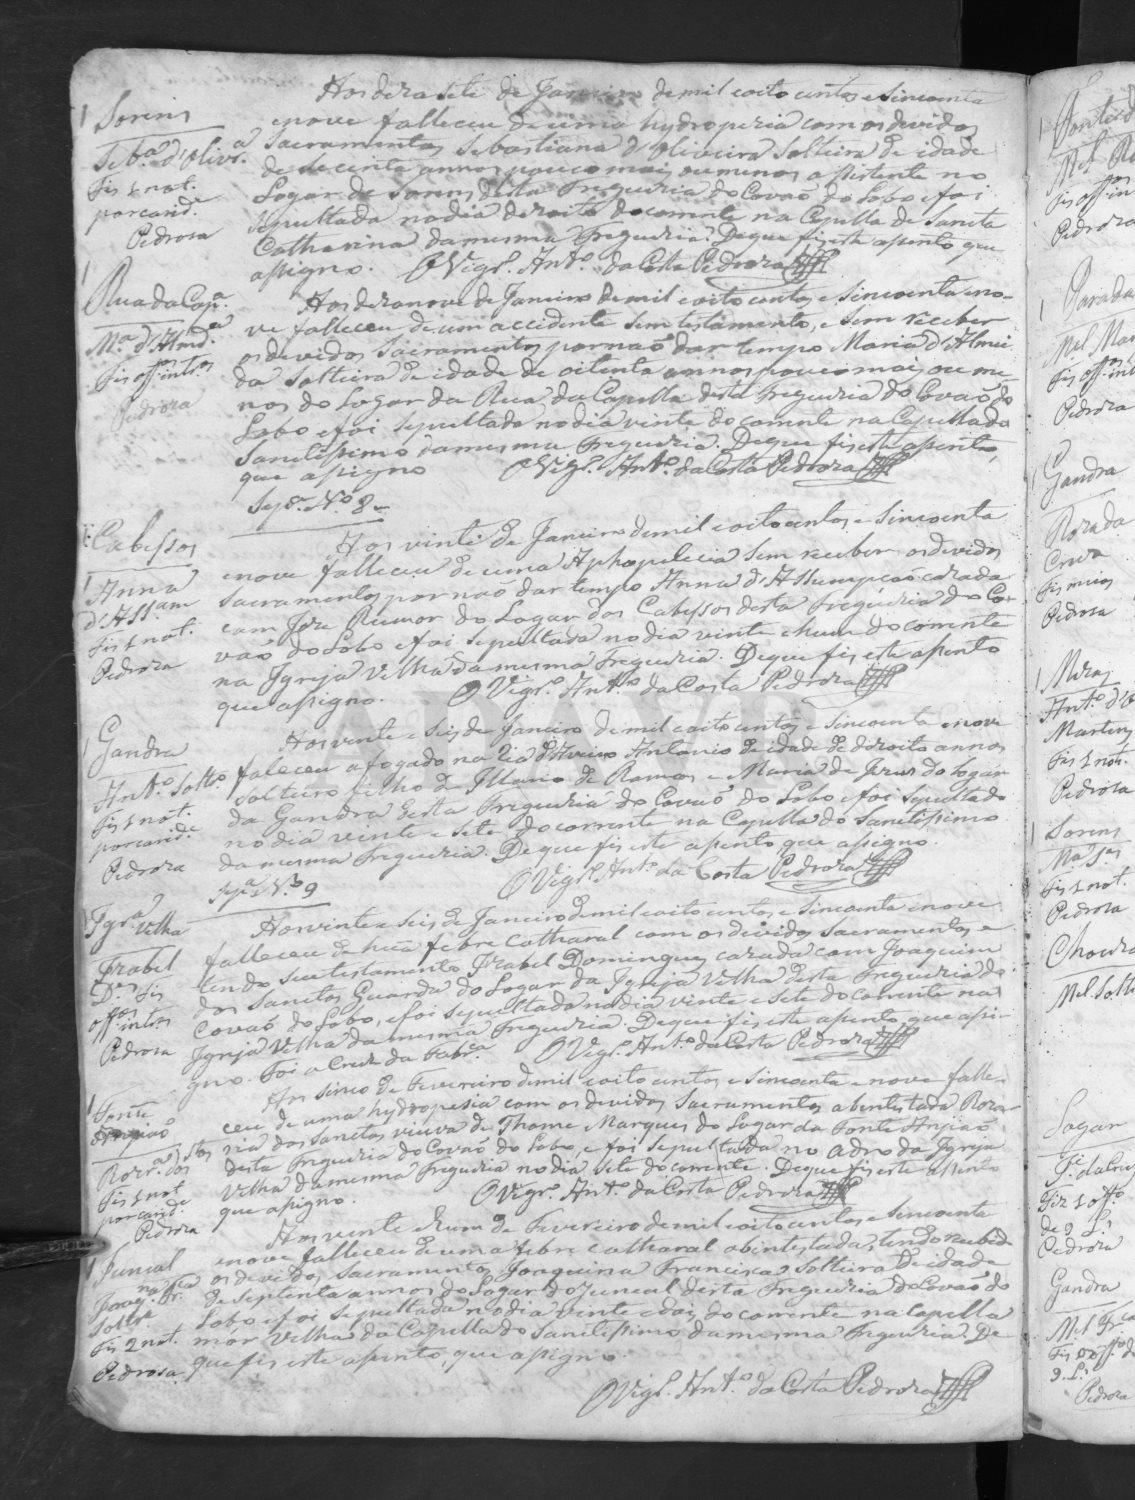 Sorens
Seb.ª d'Olivr.ª
fis 1 not.
por carid.e
Pedrosa
Aos dezasete de Janeiro de mil e oito centos e sincoenta
e nove falleceu de uma hydropezia com os devidos
Sacramentos Sebastiana d'Oliveira Solteira de idade
de secenta annos pouco mais ou menos assistente no
Logar de Sorens desta Freguezia do Covaõ do Lobo e foi
sepultada no dia dezoito do corrente na Capella de Santa
Catharina da mesma Freguezia. De que fis este assento que
assigno. O Vigr.º Ant.º da Costa Pedroza
Rua da Cap.ª
M.ª d'Almd.ª
fis off. int.os
Pedroza
Aos dezanove de Janeiro de mil e oito centos e sincoenta e no-
ve falleceu de um accidente sem testamento, e sem receber
os devidos Sacramentos por naõ dar tempo Maria d'Almei
da Solteira de idade de oitenta annos pouco mais ou me-
nos do Logar da Rua da Capella desta Freguezia do Covaõ do
Lobo e foi sepultada no dia vinte do corrente na Capella do
Santissimo da mesma Freguezia. De que fis este assento,
que assigno O Vigr.º Ant.º da Costa Pedroza
Sep.ª N.º 8
Cabessos
Anna
d'Assam
fis 1 not.
Pedroza
Aos vinte de Janeiro de mil e oito centos e sincoenta
e nove falleceu de uma Aphopelecia sem receber os devidos
Sacramentos por não dar tempo Anna d'Assumpçaõ cazada
com Joze Rumor do Logar dos Cabessos desta Freguezia do Co-
vaõ do Lobo e foi sepultada no dia vinte e hum do corrente
na Igreja Velha da mesma Freguezia. De que fis este assento
que assigno. O Vigr.º Ant.º da Costa Pedroza
Gandra
Ant.º Soltr.º
fis 1 not.
por carid.e
Pedroza
Aos vinte e seis de Janeiro de mil e oito centos e sincoenta e nove
faleceu afogado na ria d'Aveiro Antonio de idade de dezoito annos
Solteiro filho de Illario de Ramos e Maria de Jezus do Logar
da Gandra desta Freguezia do Covaõ do Lobo e foi sepultado
no dia vinte e sete do corrente na Capella do Santissimo
da mesma Freguezia. De que fis este assento que assigno.
Sep.ª N.º 9 O Vigr.º Ant.º da Costa Pedroza
Igr.ª Velha
Izabel
D.es fis
off.os int.os
Pedrosa
Aos vinte e seis de Janeiro de mil e oito centos e sincoenta e nove
falleceu de huã febre Catharal com os devidos Sacramentos e
tendo seu testamento Izabel Domingues cazada com Joaquim
dos Santos Guarda do Logar da Igreja Velha desta Freguezia do
Covaõ do Lobo, e foi sepultada no dia vinte e sete do corrente na
Igreja Velha da mesma Freguezia. De que fis este assento que assi-
gno. Foi a Cruz da Fabr.ª O Vigr.º Ant.º da Costa Pedroza
Fonte
Anjiaõ
Rozr.ª dos
fis 1 not
por carid.e
Pedroza
Aos sinco de Fevereiro de mil e oito centos e sincoenta e nove falle-
ceu de uma hydropesia com os devidos Sacramentos abintestada Roza-
ria dos Santos viuva de Thome Marques do Logar da Fonte Anjiaõ
desta Freguezia do Covão do Lobo, e foi sepultada no adro da Igreja
Velha da mesma Freguezia no dia sete do corrente. De que fis este assento
que assigno. O Vigr.º Ant.º da Costa Pedroza
Juncal
Joaq.na Fr.ca
Soltr.ª
fis 2 not.
Pedrosa
Aos vinte e hum de Fevereiro de mil e oito centos e sincoenta
e nove falleceu de uma febre catharal abintestada, tendo recebido
os devidos Sacramentos Joaquina Francisca Solteira de idade
de septenta annos do Logar do Juncal desta Freguezia do Covaõ do
Lobo e foi sepultada no dia vinte e dois do corrente na Capella
mor Velha da Capella do Santissimo da mesma Freguezia. De
que fis este assento, que assigno.
O Vigr.º Ant.º da Costa Pedroza
ADAVR
Gandra
Rozada
Cruz
Pedrosa
Ant.º d'O
Martins
fis 1 not.
Pedrosa
Sorens
fis 1 not.
Pedrosa
Mel. Solt
Logar
Pedroza
Gandra
Pedroza